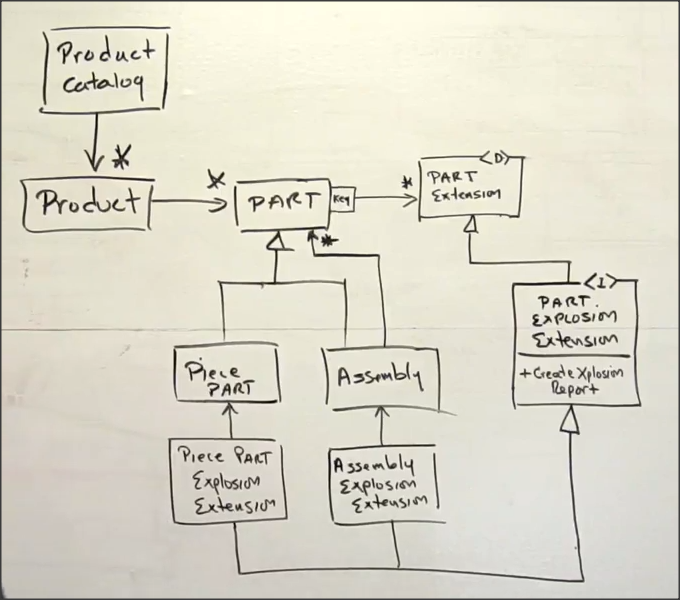 Product
Catalog
*
Product
*
PART
Key
*
<D>
PART
Extension
*
<I>
PART.
Explosion
Extension
+CreateXplosion
Report
Piece
PART
Assembly
Piece PART
Explosion
Extension
Assembly
Explosion
Extension